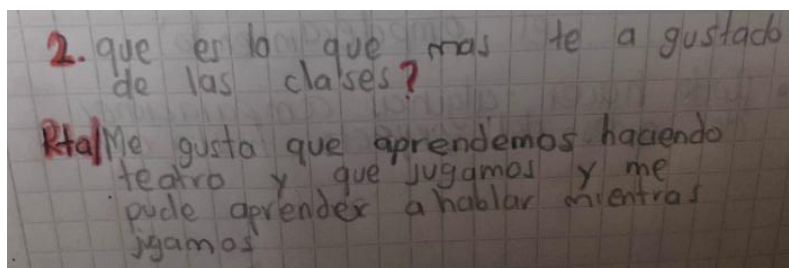 2. que es lo que mas te a gustado
de las clases?
Rta/Me gusta que aprendemos haciendo
teatro y que jugamos y me
pude aprender a hablar mientras
jgamos